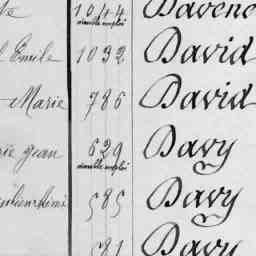 1044 Davene
double emploi
Emile 1032 David
Marie 786 David
rie jean 629 Davy
double emploi
585 Davy
581 Davy